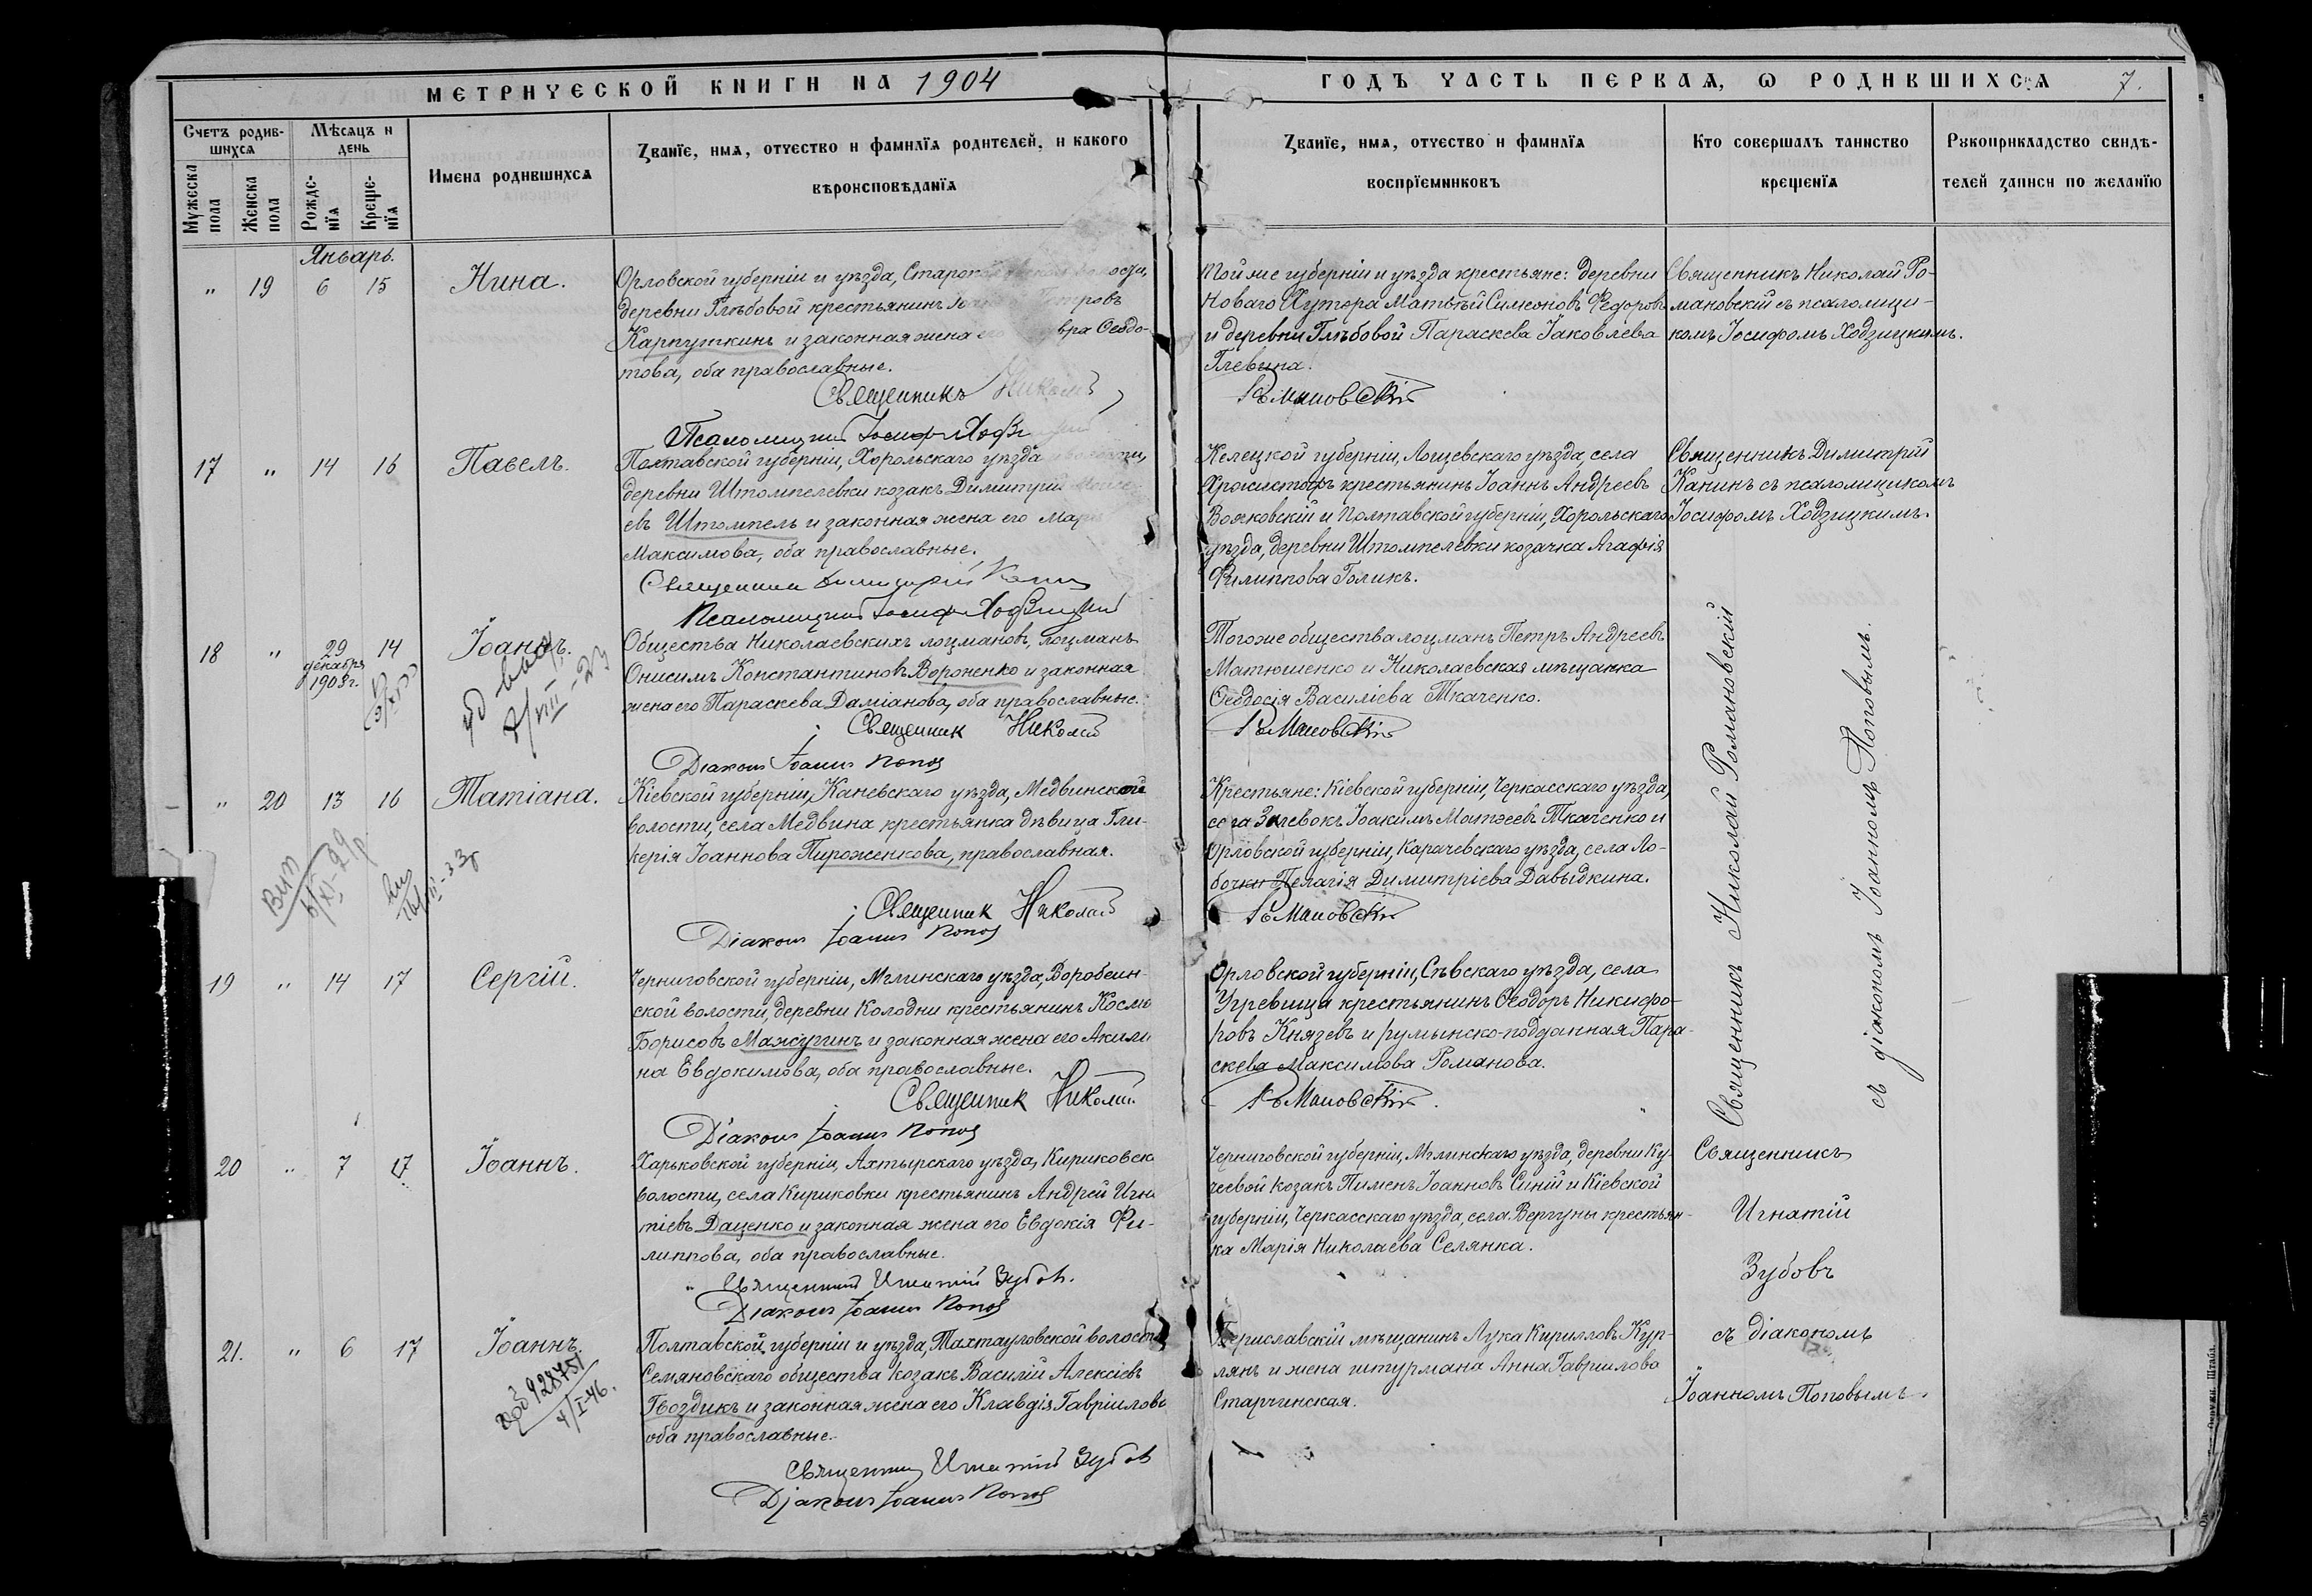 МЕТРИЧЕСКОЙ КНИГИ НА 1904
ГОДЪ ЧАСТЬ ПЕРВАЯ, Ѡ РОДИВШИХСЯ 7.
Счетъ родив-
шихся
Мѣсяцъ и
день
Мужеска
пола
Женска
пола
Рожде-
нїя
Креще-
нїя
Имена родившихся
Званїе, имя, отчество и фамилїя родителей, и какого
вѣроисповѣданїя
Званїе, имя, отчество и фамилїя
воспрїемниковъ
Кто совершалъ таинство
крещенїя
Рукоприкладство свидѣ-
телей записи по желанїю
Январь.
" 19 6 15 Нина.
Орловской губерніи и уѣзда,
деревни Глѣбовой крестьянинъ
Карпушкинъ и законная жена Ѳеодо-
това, оба православные.
Священникъ Николай
Псаломщикъ Іосифъ
Той же губерніи и уѣзда крестьяне: деревни
Новаго Хутора Матѳей Симеоновъ Ѳедоровъ
и деревни Глѣбовой Параскева Іаковлева
Глевина.
Романовскій
Священникъ Николай Ро-
мановскій съ псаломщи-
комъ Іосифомъ Ходзицкимъ.
17 " 14 16 Павелъ.
Полтавской губерніи, Хорольскаго уѣзда
деревни Штомпелевки козакъ Димитрій
евъ Штомпель и законная жена его
Максимова, оба православные.
Священникъ Димитрій Канинъ
Псаломщикъ Іосифъ Ходзицкій
Келецкой губерніи, уѣзда, села
крестьянинъ Іоаннъ Андреевъ
и Полтавской губерніи, Хорольскаго
уѣзда, деревни Штомпелевки козачка Агафія
Филиппова Голикъ.
Священникъ Димитрій
Канинъ съ псаломщикомъ
Іосифомъ Ходзицкимъ.
18 " 29 14 Іоаннъ.
декабря
1903 г.
Общества Николаевскихъ лоцмановъ, лоцманъ
Онисимъ Константиновъ Вороненко и законная
жена его Параскева Даміанова, оба православные.
Священник Николай
Діаконъ Іоаннъ Попов
Того же общества лоцманъ Петръ Андреевъ
Матюшенко и Николаевская мѣщанка
Ѳеодосія Василіева Ткаченко.
Романовскій
Священникъ Николай Романовскій
съ діакономъ Іоанномъ Поповымъ.
" 20 13 16 Татіана.
Кіевской губерніи, Каневскаго уѣзда, Медвинской
волости, села Медвина крестьянка дѣвица Гли-
керія Іоаннова Пироженкова, православная.
Священник Николай
Діаконъ Іоаннъ Попов
Крестьяне: Кіевской губерніи, Черкасскаго уѣзда,
села Іоакимъ Матѳеевъ Ткаченко и
Орловской губерніи, Карачевскаго уѣзда, села Ло-
бочки Пелагія Димитріева Давыдкина.
Романовскій
19 " 14 17 Сергій.
Черниговской губерніи, Мглинскаго уѣзда, Воробеин-
ской волости, деревни Колодни крестьянинъ Косма
Борисовъ Мажугинъ и законная жена его Акили
на Евдокимова, оба православные.
Священник Николай
Діаконъ Іоаннъ Попов
Орловской губерніи, Сѣвскаго уѣзда, села
Угревища крестьянинъ Ѳеодоръ Никифо-
ровъ Князевъ и румынско-подданная Пара-
скева Максимова Романова.
Романовскій
20 " 7 17 Іоаннъ.
Харьковской губерніи, Ахтырскаго уѣзда, Кириковск
волости, села Кириковки крестьянинъ Андрей Игна
тіевъ Даценко и законная жена его Евдокія Фи-
липпова, оба православные.
Священникъ Игнатій Зубовъ.
Діаконъ Іоаннъ Попов
Черниговской губерніи, Мглинскаго уѣзда, деревни Ку-
чеевой козакъ Пименъ Іоанновъ Синій и Кіевской
губерніи, Черкасскаго уѣзда, села Вергуны крестьян-
ка Марія Николаева Селянка.
Священникъ
Игнатій
Зубовъ
съ діакономъ
Іоанномъ Поповымъ.
21. " 6 17 Іоаннъ.
Полтавской губерніи и уѣзда, Тахтауловской волости
Семяновскаго общества козакъ Василій Алексіевъ
Гвоздикъ и законная жена его Клавдія Гавріилова
оба православные.
Священникъ Игнатій Зубовъ
Діаконъ Іоаннъ Попов
Бериславскій мѣщанинъ Лука Кирилловъ Кур-
лянъ и жена штурмана Анна Гавриилова
Старчинская.